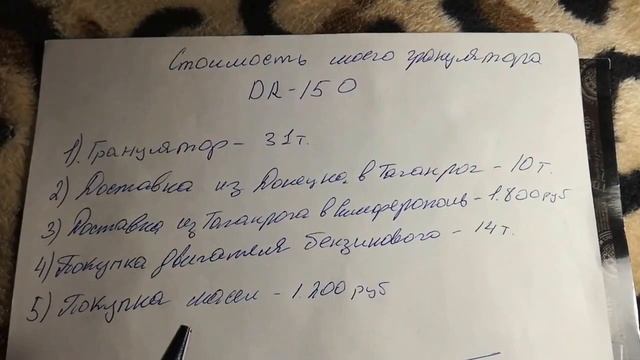 Стоимость моего гранулятора
DR-150
1). Гранулятор - 31т.
2) Доставка из Донецка в Таганрог - 10т.
3) Доставка из Таганрога в Симферополь - 1.800руб
4) Покупка двигателя бензинового - 14т.
5) Покупка масел - 1.200руб